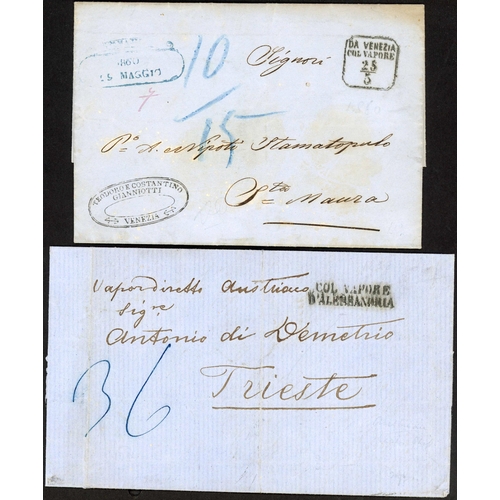 1860
MAGGIO
10
Signori
DA VENEZIA
COL VAPORE
25
5
15
P. A. e Nipoti Stamatopulo
Sta Maura
TEODORO E COSTANTINO
GIANNIOTTI
VENEZIA
Vapor diretto Austriaco
COL VAPORE
D'ALESSANDRIA
Sigre
Antonio di Demetrio
36
Trieste